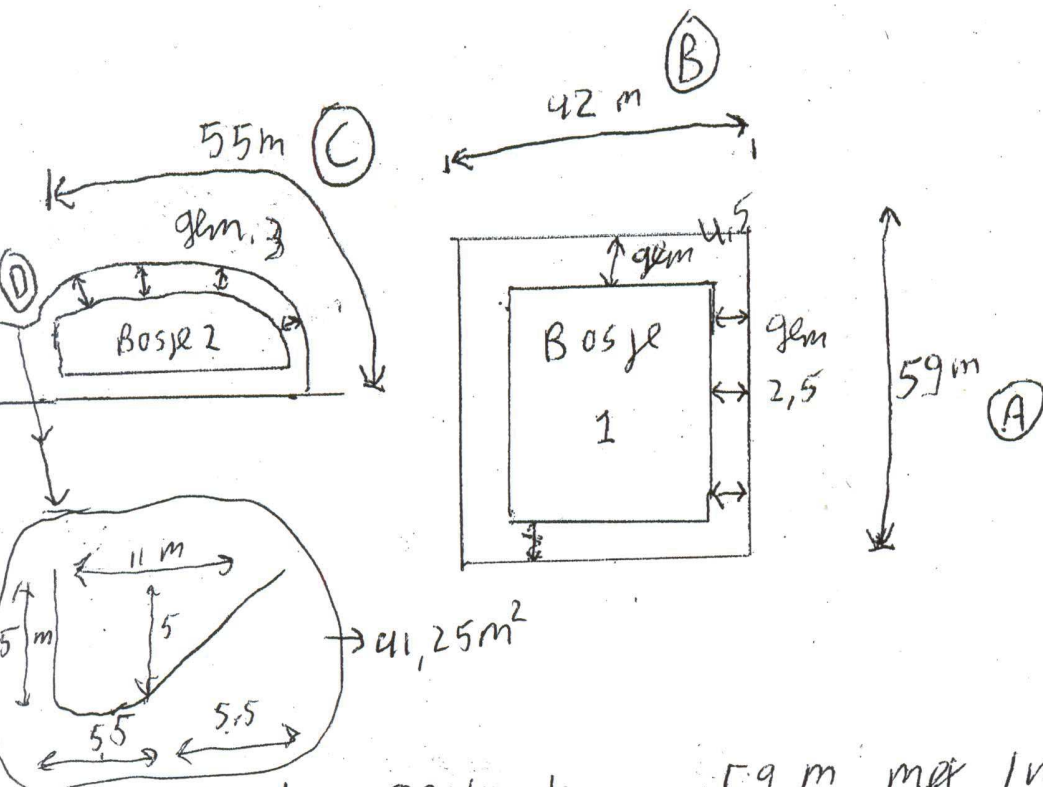 B
42 m
55m C
gem. 3
4,5
gem
D
Bosje 2
Bosje
1
gem
2,5
59 m
A
11 m
5 m
5
41,25m²
5,5
5,5
59 m met